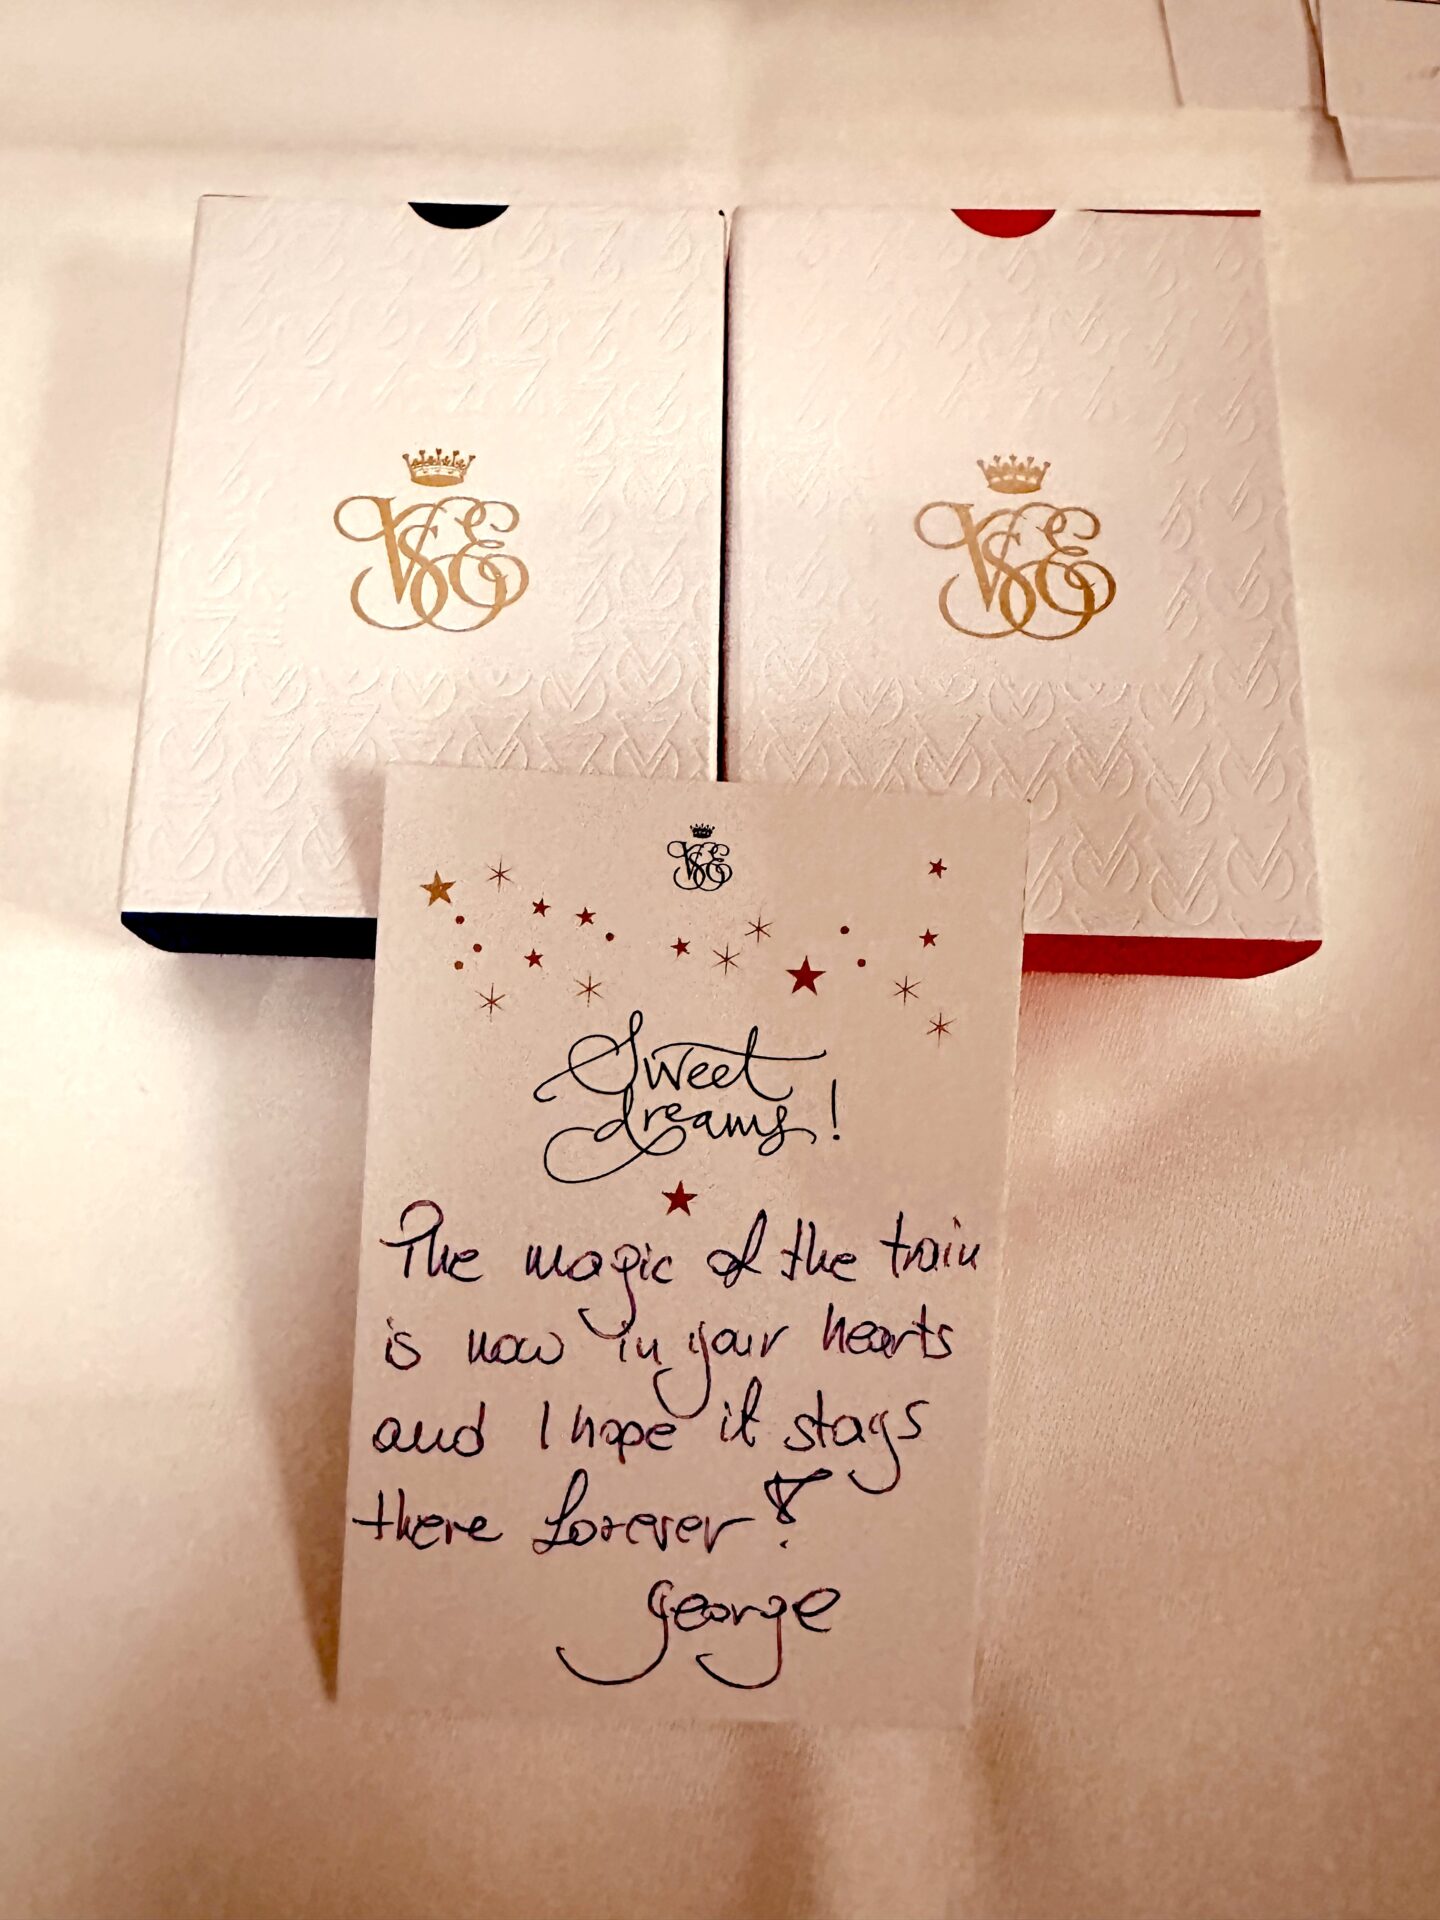 VSE
VSE
VSE
Sweet
dreams!
The magic of the train
is now in your hearts
and I hope it stays
there forever!
george